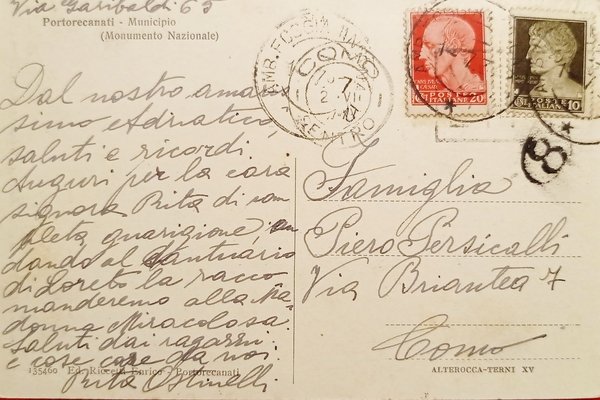 Via Garibaldi 65
Portorecanati - Municipio
(Monumento Nazionale)
Dal nostro ama-
tissimo e Adriatico,
saluti e ricordi
Auguri per la cara
signora Rita di com-
pleta guarigione, an-
dando al Santuario
di Loreto la racco-
manderemo alla Ma-
donna Miracolosa.
Saluti dai ragazzi
e cose care da noi.
Rita Ostinelli
135460 Ed. Riccetti Enrico - Portorecanati
COMO
CENTRO
POSTE
ITALIANE
20
POSTE
ITALIANE
10
8
Famiglia
Piero Persicalli
Via Briantea 7
Como
ALTEROCCA-TERNI XV